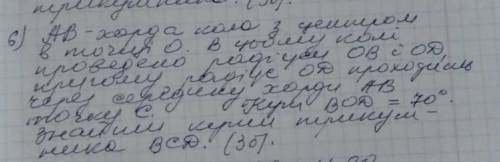 трикутника. (3б).
6) АВ - хорда кола з центром
в точці О. В цьому колі
проведено радіуси ОВ і ОD,
причому радіус ОD проходить
через середину хорди АВ
точку С. Кут ВОD = 70°.
Знайти кути трикут-
ника ВСD. (3б).